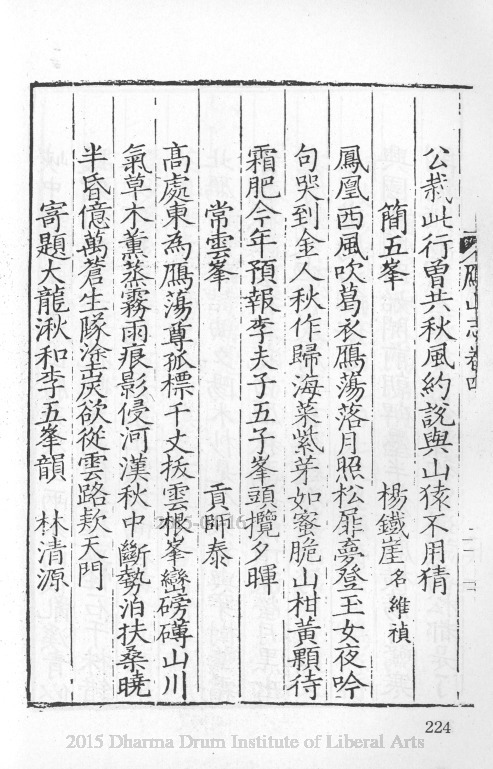 鴈山志卷四
公哉此行曾共秋風約說與山猿不用猜
簡五峯 楊鐵崖名維禎
鳳凰西風吹葛衣鴈蕩落月照松扉夢登玉女夜吟
句哭到金人秋作歸海菜紫芽如蜜脆山柑黃顆待
霜肥今年預報李夫子五子峯頭攬夕暉
常雲峯 貢師泰
高處東為鴈蕩尊孤標千丈拔雲根峯巒磅礡山川
氣草木薰蒸霧雨痕影侵河漢秋中斷勢泊扶桑曉
半昏億萬蒼生隊塗炭欲從雲路欵天門
寄題大龍湫和李五峯韻 林清源
224
2015 Dharma Drum Institute of Liberal Arts